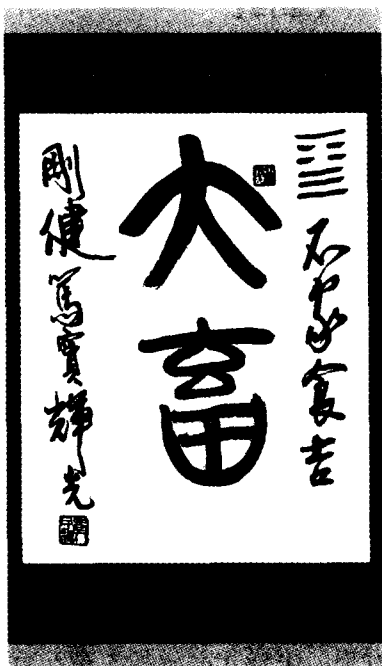 不家食吉
大畜
剛健篤實輝光